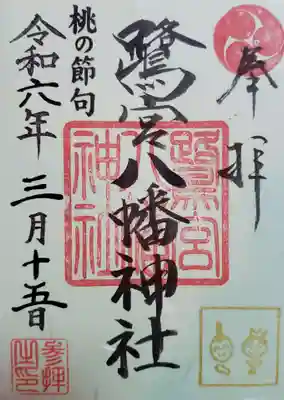 奉拝
鷺宮八幡神社
鷺宮八幡神社
桃の節句
令和六年三月十五日
参拝之印